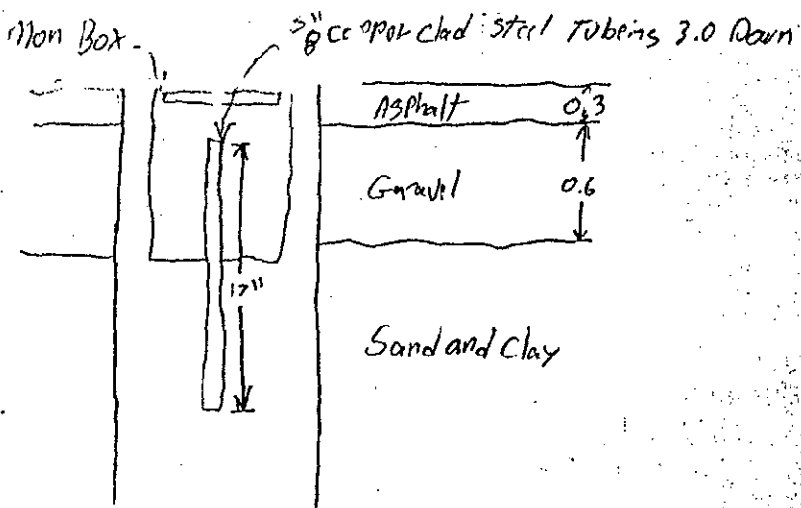 Mon Box 3/8" copper clad steel Tubeing 3.0 Down
Asphalt 0.3
Gravel 0.6
17"
Sand and Clay